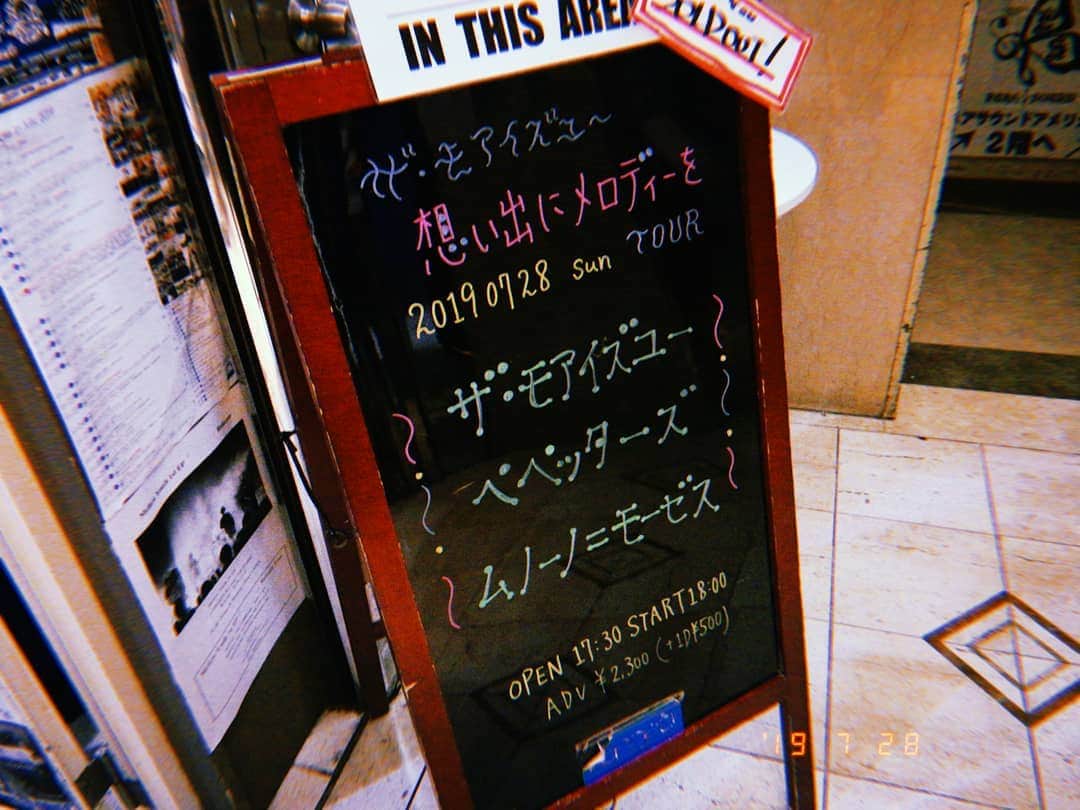 IN THIS AREA
ザ・モアイズユー
想い出にメロディーを
TOUR
20190728 sun
ザ・モアイズユー
ペペッターズ
ムノーノ=モーゼス
OPEN 17:30 START 18:00
ADV ¥2,300 (+1D¥500)
2階へ
'19 7 28